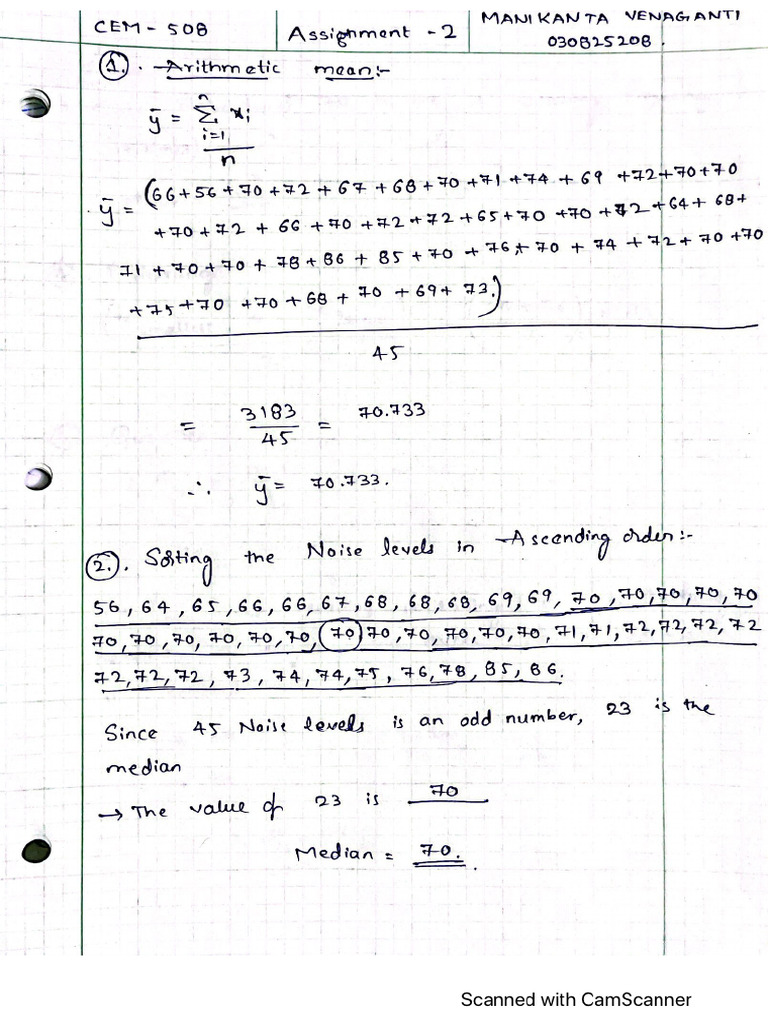 CEM - 508
Assignment - 2
MANIKANTA VENAGANTI
030825208.
1. Arithmetic mean:-
ȳ = n Σ i=1 xi
n
ȳ = (66+56+70+72+67+68+70+71+74+69+72+70+70
+70+72+66+70+72+72+65+70+70+72+64+68+
71+70+70+78+86+85+70+76+70+74+72+70+70
+75+70+70+68+70+69+73.)
45
= 3183/45 = 70.733
∴ ȳ = 70.733.
2. Sorting the Noise levels in Ascending order:-
56, 64, 65, 66, 66, 67, 68, 68, 68, 69, 69, 70, 70, 70, 70, 70
70, 70, 70, 70, 70, 70, 70 70, 70, 70, 70, 70, 71, 71, 72, 72, 72, 72
72, 72, 72, 73, 74, 74, 75, 76, 78, 85, 86.
Since 45 Noise levels is an odd number, 23 is the
median
→ The value of 23 is 70
Median = 70.
Scanned with CamScanner